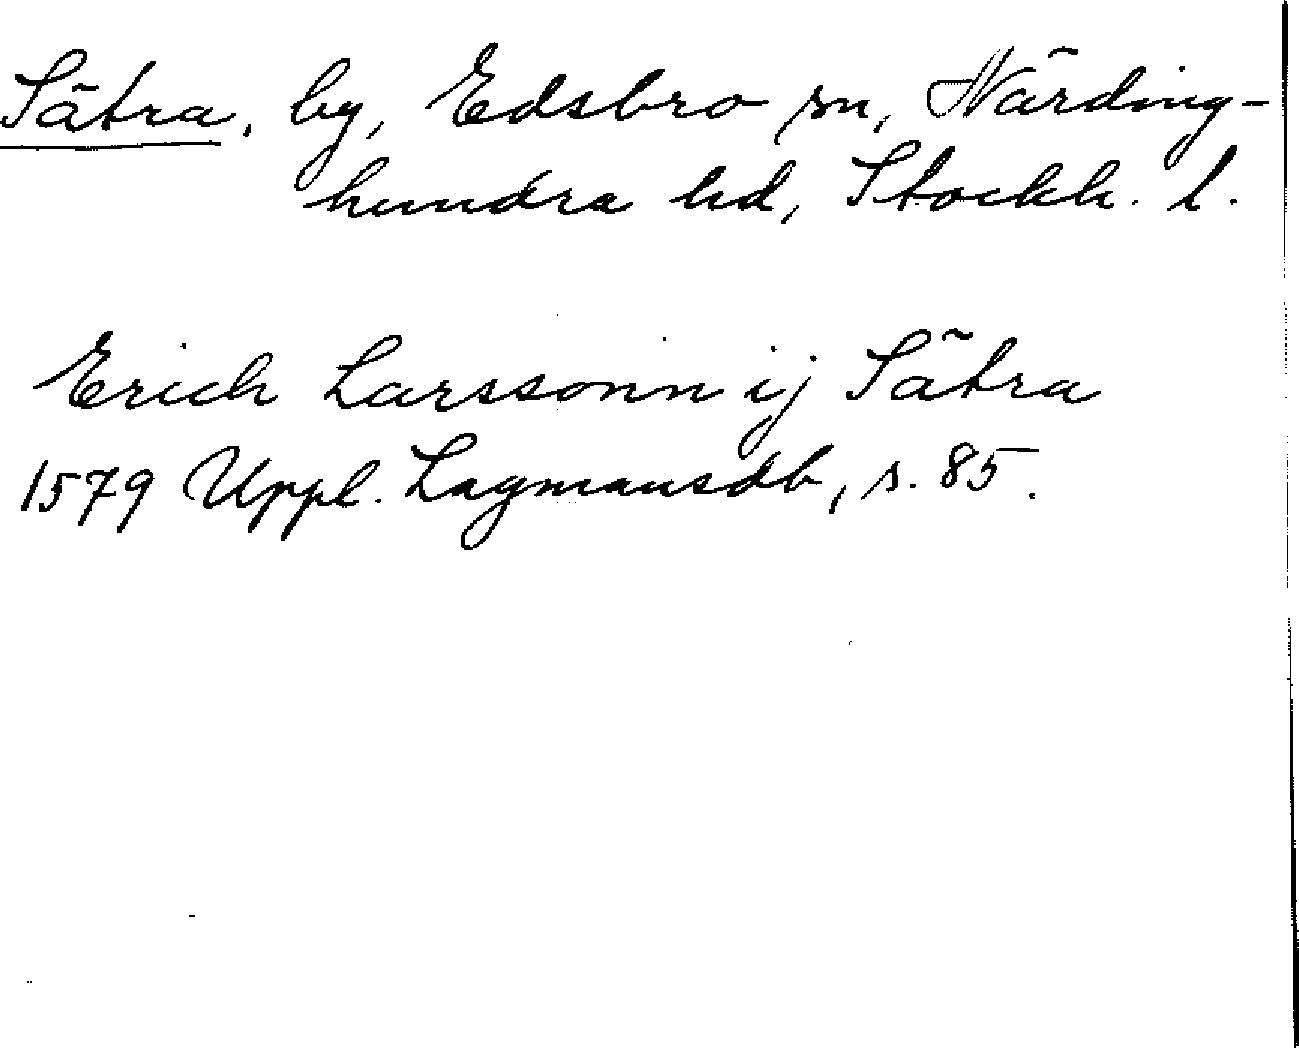 Sätra, by, Edsbro sn, Närding-
hundra hd, Stockh. l.
Erich Larssonn ij Sätra
1579 Uppl. Lagmansdb, s. 85.